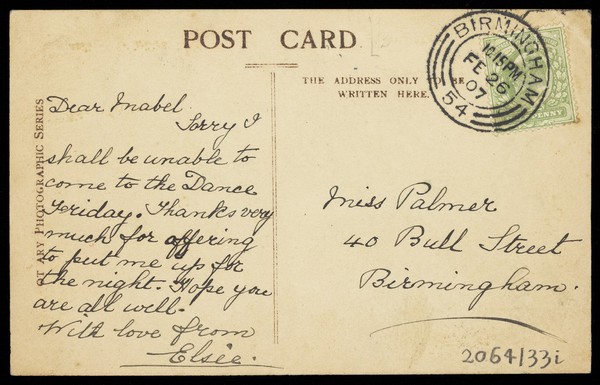 POST CARD
THE ADDRESS ONLY TO BE
WRITTEN HERE.
BIRMINGHAM
10.15PM
FE 26
07
54
PENNY
OTARY PHOTOGRAPHIC SERIES
Dear Mabel
Sorry I
shall be unable to
come to the Dance
Friday. Thanks very
much for offering
to put me up for
the night. Hope you
are all well.
With love from
Elsie.
Miss Palmer
40 Bull Street
Birmingham.
2064/33i